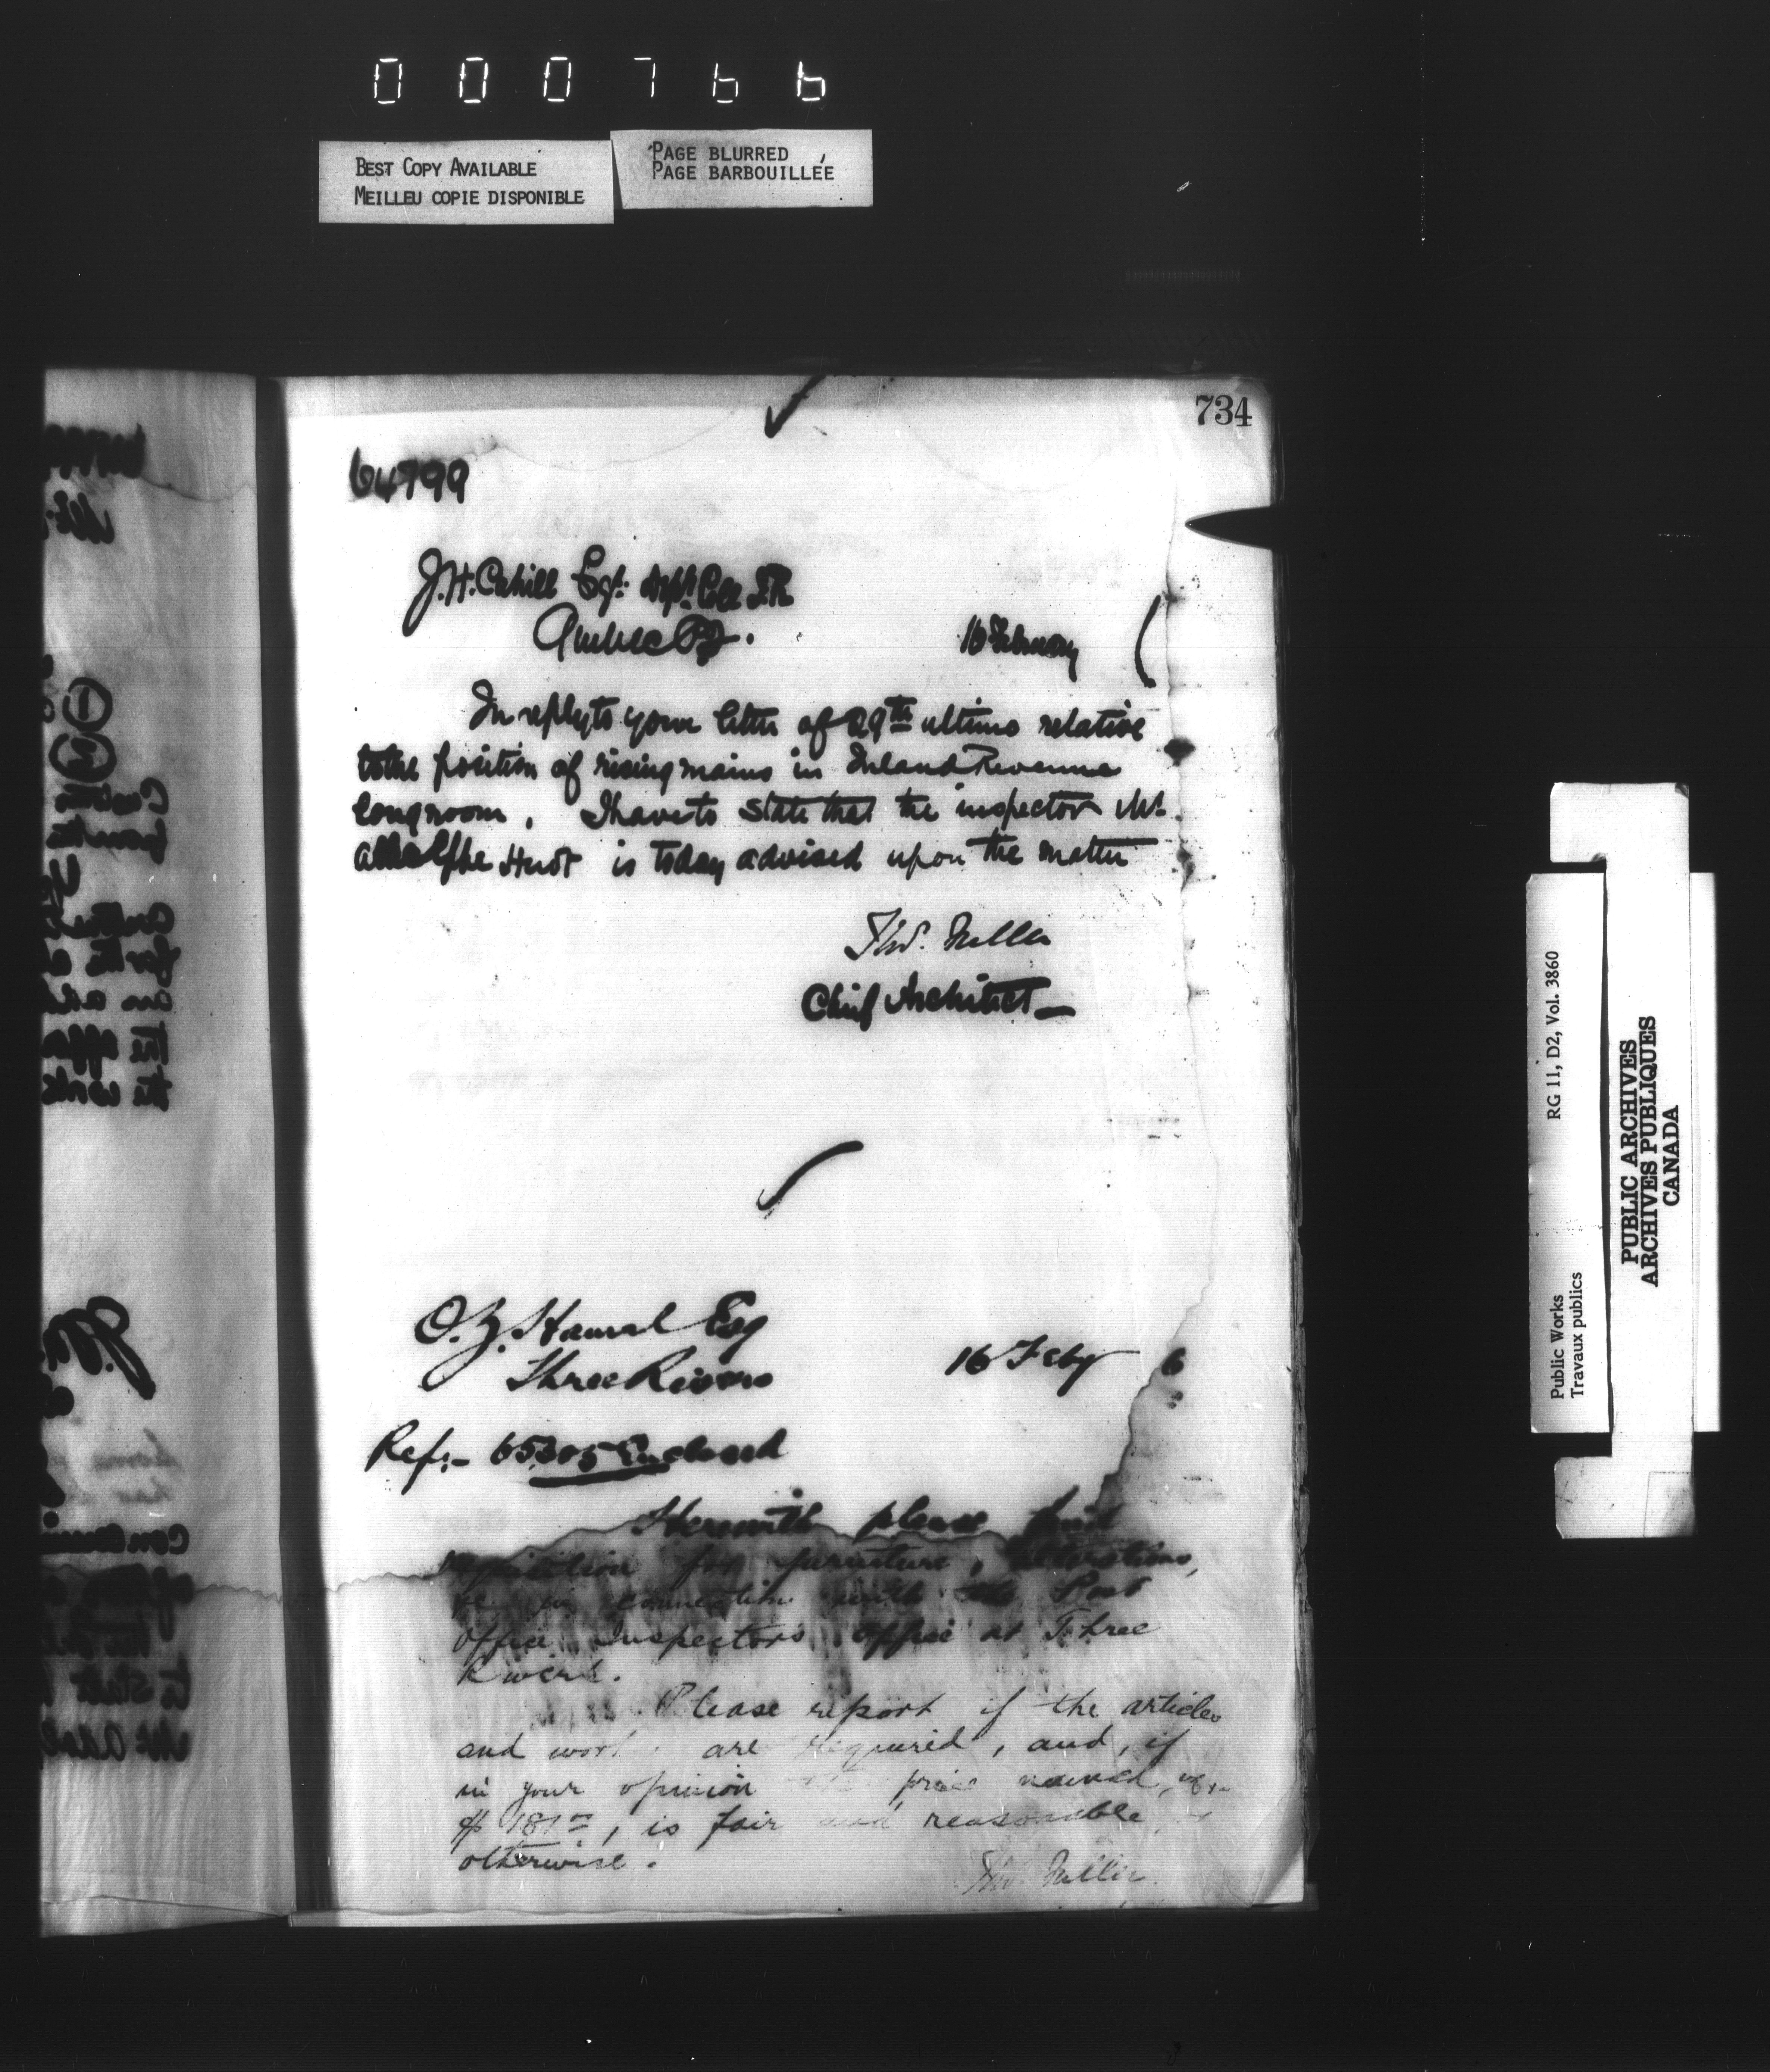 000766
BEST COPY AVAILABLE
MEILLEU COPIE DISPONIBLE
PAGE BLURRED
PAGE BARBOUILLÉE
734
64799
J. H. Cahill Esq: Dept. Coll I.R.
Quebec P.Q.
16 February
In reply to your letter of 29th ultimo relative
to the position of rising mains in Inland Revenue
long room. I have to state that the inspector Mr.
Huot is today advised upon the matter
Tho. Fuller
Chief Architect
O. Z. Hamel Esq
Three Rivers
16 Feby 6
Ref:- Enclosed
Herewith please find
requisition for furniture, alterations,
&c in connection with the Post
Office Inspectors Office at Three
Rivers.
Please report if the articles
and work are required, and, if
in your opinion the price named,
$ 181, is fair and reasonable
otherwise.
Tho. Fuller.
RG 11, D2, Vol. 3860
Public Works
Travaux publics
PUBLIC ARCHIVES
ARCHIVES PUBLIQUES
CANADA